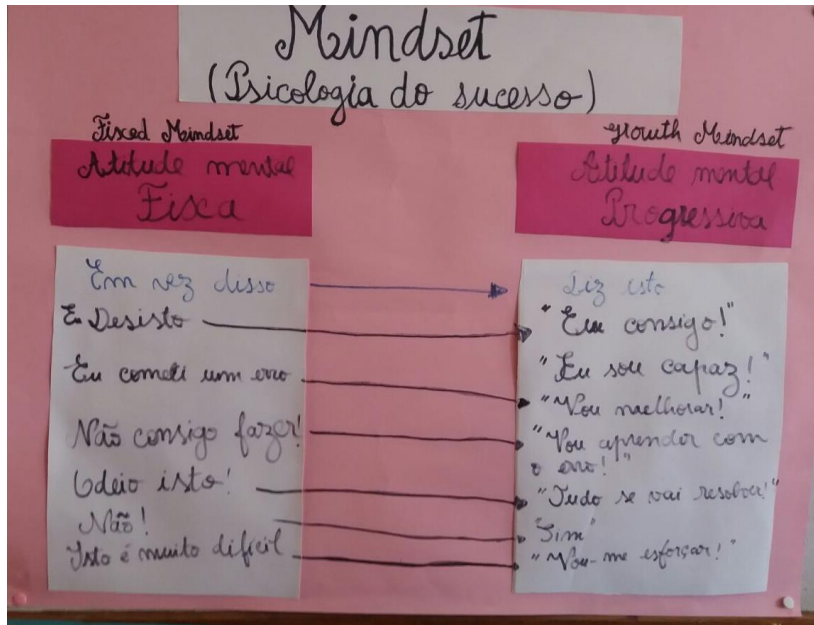 Mindset
(Psicologia do sucesso)
Fixed Mindset
Atitude mental
Fixa
Em vez disso
Desisto
Eu cometi um erro
Não consigo fazer!
Odeio isto!
Não!
Isto é muito difícil
growth Mindset
Atitude mental
Progressiva
Diz isto
"Eu consigo!"
"Eu sou capaz!"
"Vou melhorar!"
"Vou aprender com
o erro!"
"Tudo se vai resolver!"
Sim"
"Vou-me esforçar!"